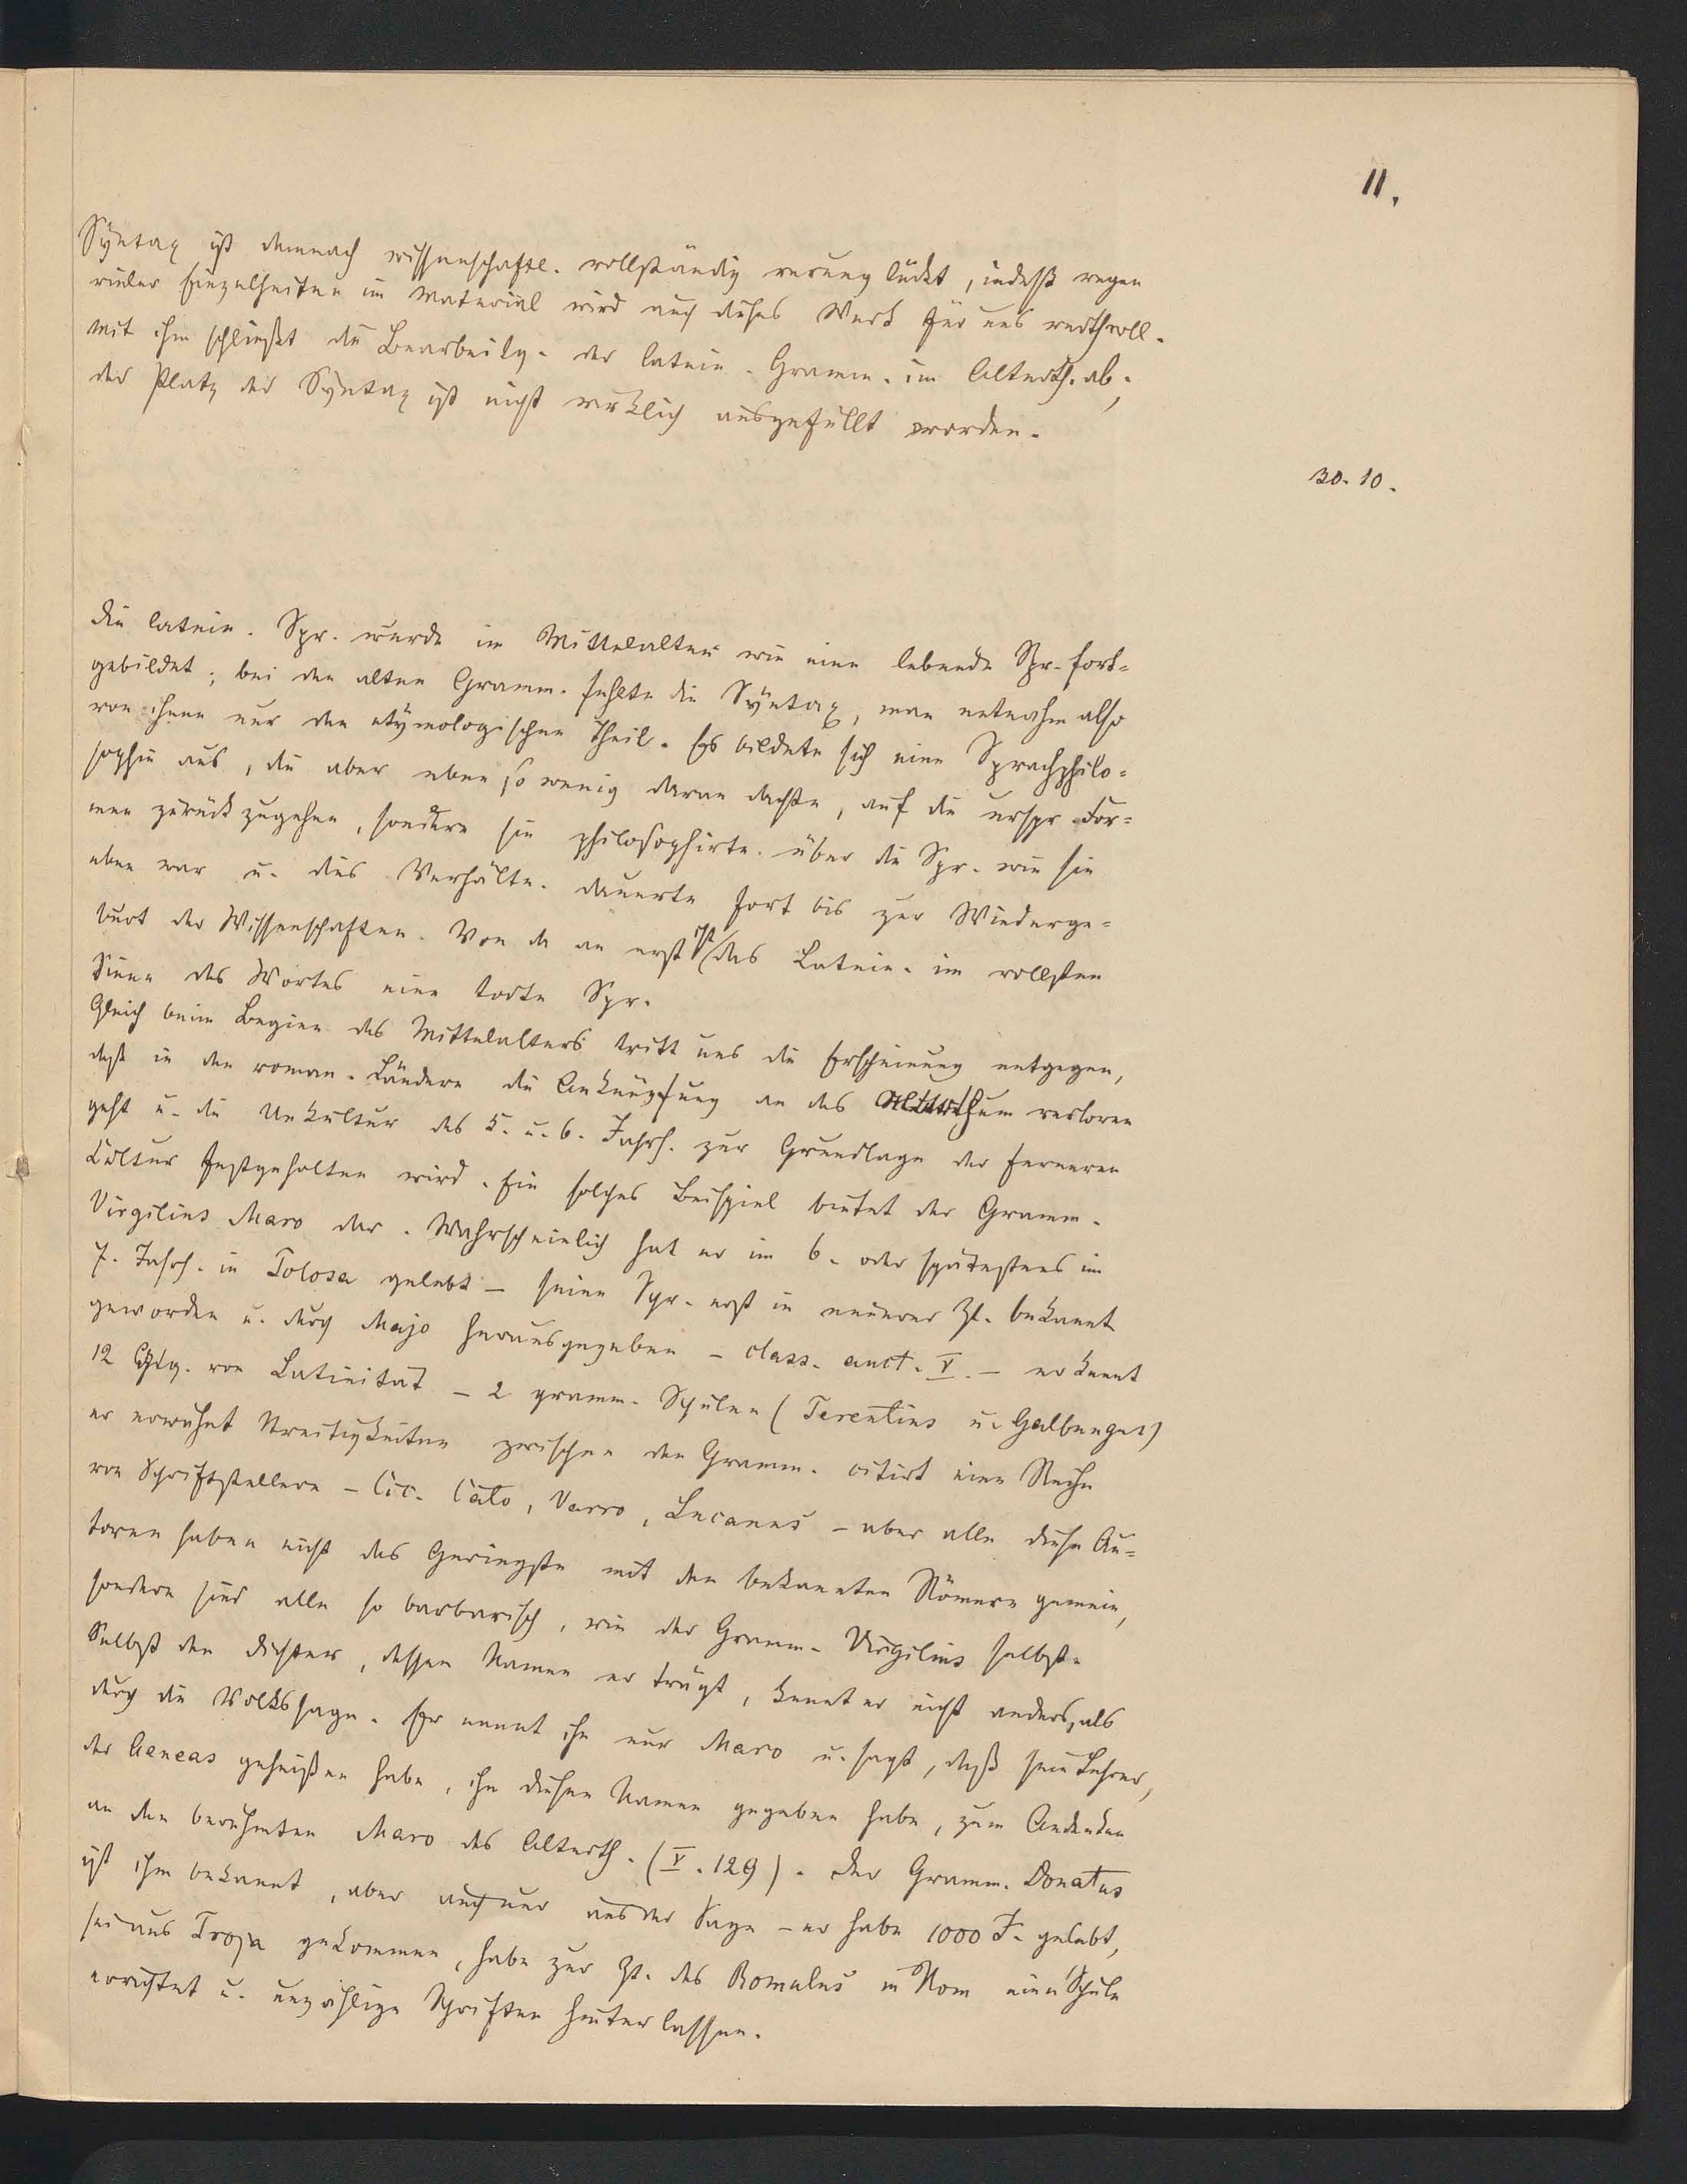 11.
Syntax ist demnach wissenschaftl. vollständig verunglückt, indeß wegen
vieler Einzelheiten im Material wird auch dieses Werk für uns werthvoll.
Mit ihm schließt die Bearbeitg. der latein. Gramm. im Alterth. ab;
der Platz der Syntax ist nicht wirklich ausgefüllt worden.
30. 10.
Die latein. Spr. wurde im Mittelalter wie eine lebende Spr. fort-
gebildet; bei den alten Gramm. fehlte die Syntax, man entnahm also
von ihnen nur den etymologischen Theil. Es bildete sich eine Sprachphilo-
sophie aus, die aber eben so wenig daran dachte, auf die urspr. For-
men zurückzugehen, sondern sie philosophirte über die Spr. wie sie
eben war u. dies Verhältn. dauerte fort bis zur Wiederge-
burt der Wissenschaften. Von da an erst ist das Latein. im vollsten
Sinne des Wortes eine todte Spr.
Gleich beim Beginn des Mittelalters tritt uns die Erscheinung entgegen,
daß in den roman. Ländern die Anknüpfung an das Alterthum verloren
geht u. die Unkultur des 5. u. 6. Jahrh. zur Grundlage der ferneren
Cultur festgehalten wird. Ein solches Beispiel bietet der Gramm.
Virgilius Maro dar. Wahrscheinlich hat er im 6. oder spätestens im
7. Jahrh. in Tolosa gelebt – seine Schr. erst in neuerer Zt. bekannt
geworden u. durch Majo herausgegeben – class. auct. V. – er kennt
12 Gtg. von Latinität – 2 gramm. Schulen (Terentius u. Galbungus)
er erwähnt Streitigkeiten zwischen den Gramm. citirt eine Reihe
von Schriftstellern – Cic. Cato, Varro, Lucanus – aber alle diese Au-
toren haben nicht das Geringste mit den bekannten Römern gemein,
sondern sind alle so barbarisch, wie der Gramm. Virgilius selbst.
Selbst den Dichter, dessen Namen er trägt, kennt er nicht anders, als
durch die Volkssage. Er nennt ihn nur Maro u. sagt, daß sein Lehrer,
der Aeneas geheißen habe, ihm diesen Namen gegeben habe, zum Andenken
an den berühmten Maro des Alterth. (V. 129). Der Gramm. Donatus
ist ihm bekannt, aber auch nur aus der Sage – er habe 1000 J. gelebt,
sei aus Troja gekommen, habe zur Zt. des Romulus in Rom eine Schule
errichtet u. unzählige Schriften hinterlassen.